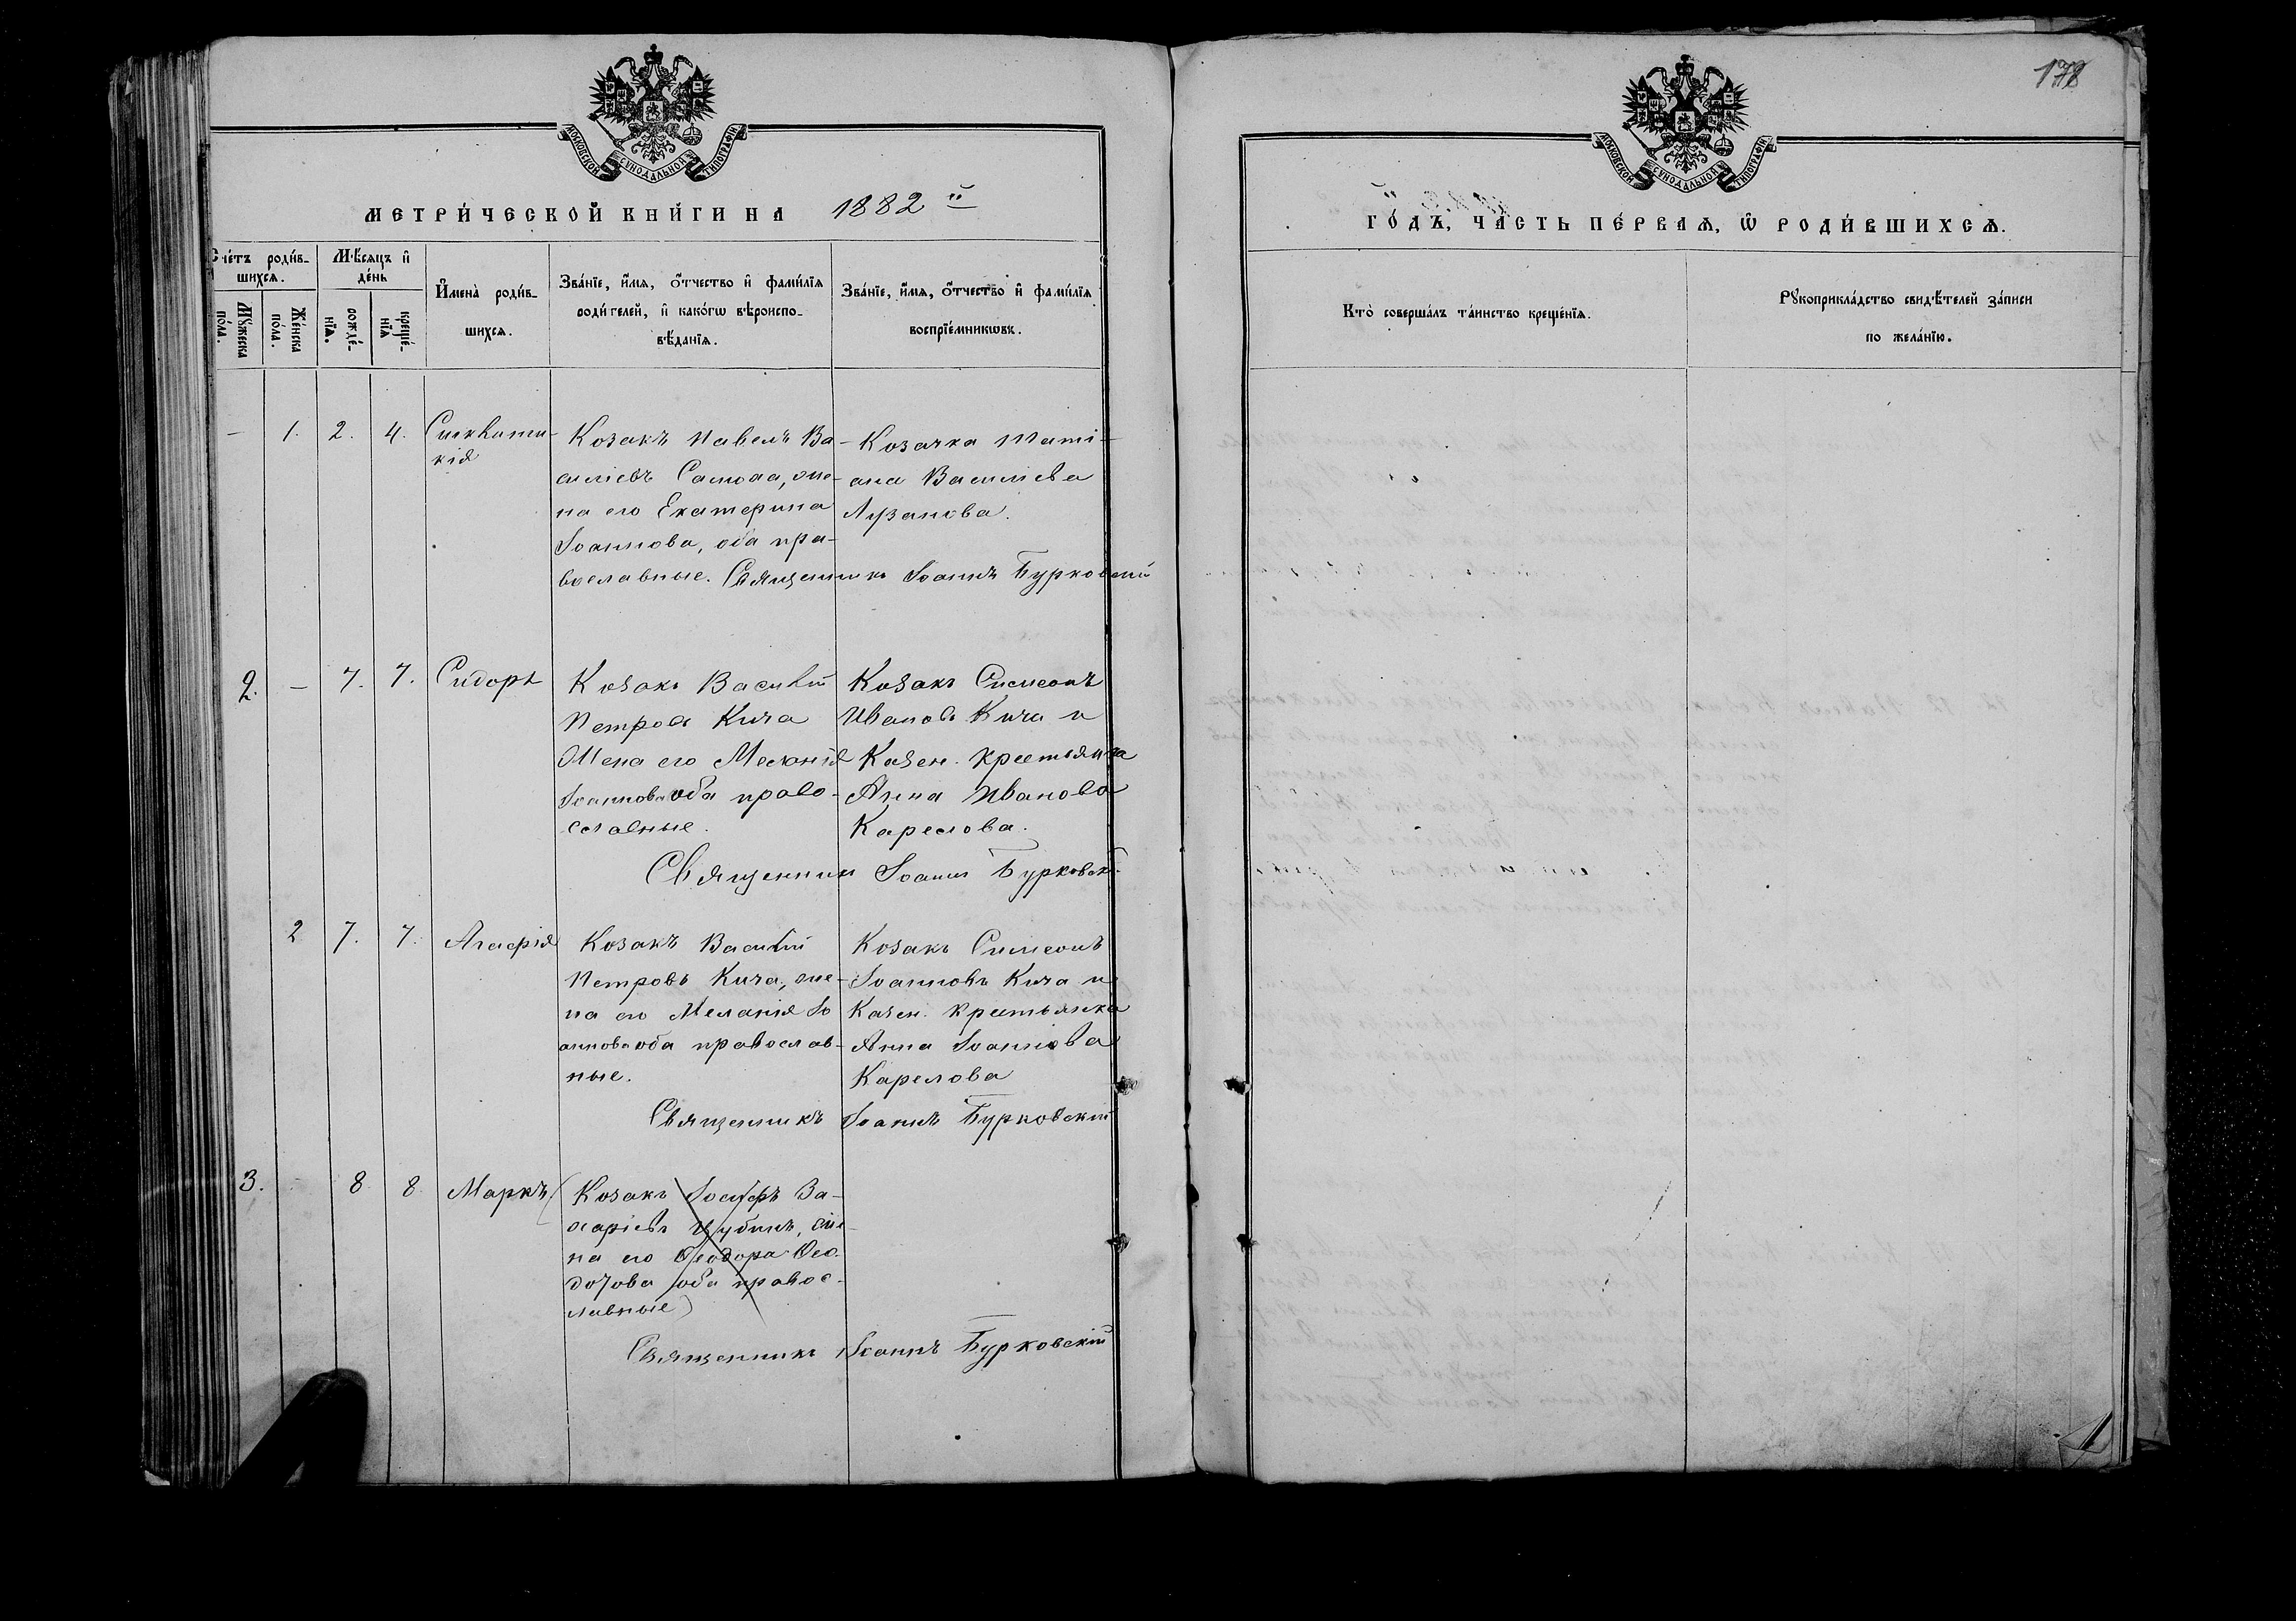 178
МОСКОВСКОЙ СѴНОДАЛЬНОЙ ТИПОГРАФІИ
МОСКОВСКОЙ СѴНОДАЛЬНОЙ ТИПОГРАФІИ
МЕТРИ́ЧЕСКОЙ КНИ́ГИ НА 1882 й
ГО́ДЪ, ЧА́СТЬ ПЕ́РВАЯ, Ѡ РОДИ́ВШИХСЯ.
Сче́тъ роди́в-
шихся.
Мѣ́сяцъ и
де́нь
Мꙋ́жеска
по́ла.
Же́нска
по́ла.
рожде́-
нїя.
креще́-
нїя
И҆мена̀ роди́в-
шихся.
Зва́нїе, и҆́мя, ѻ҆́тчество и҆ фами́лїя
роди́телей, и҆ како́гѡ вѣроиспо-
вѣ́данїя.
Зва́нїе, и҆́мя, ѻ҆́тчество и҆ фами́лїя
воспрїе́мникѡвъ.
Кто̀ соверша́лъ та́инство креще́нїя.
Рꙋкоприкла́дство свидѣ́телей за́писи
по жела́нїю.
– 1. 2. 4. Синклити-
кія
Козакъ Павелъ Ва-
силіевъ же-
на его Екатерина
Іоаннова, оба пра-
вославные.
Козачка Таті-
ана Василіева
Лузанова.
Священникъ Іоаннъ Бурковскій
2. – 7. 7. Сидоръ
Козакъ Василій
Петровъ Кича
Жена его Меланія
Іоаннова оба право-
славные.
Козакъ Симеонъ
Ивановъ Кича и
Казен. крестьянка
Анна Иванова
Карелова.
Священникъ Іоаннъ Бурковскій
2 7. 7. Агафія
Козакъ Василій
Петровъ Кича, же-
на его Меланія Іо
аннова оба православ-
ные.
Козакъ Симеонъ
Іоанновъ Кича и
Казен. крестьянка
Анна Іоаннова
Карелова
Священникъ Іоаннъ Бурковскій
3. 8 8. Маркъ
(Козакъ Іосифъ За-
харіевъ же-
на его Феодора Фео-
дотова оба правос-
лавные)
Священникъ Іоаннъ Бурковскій